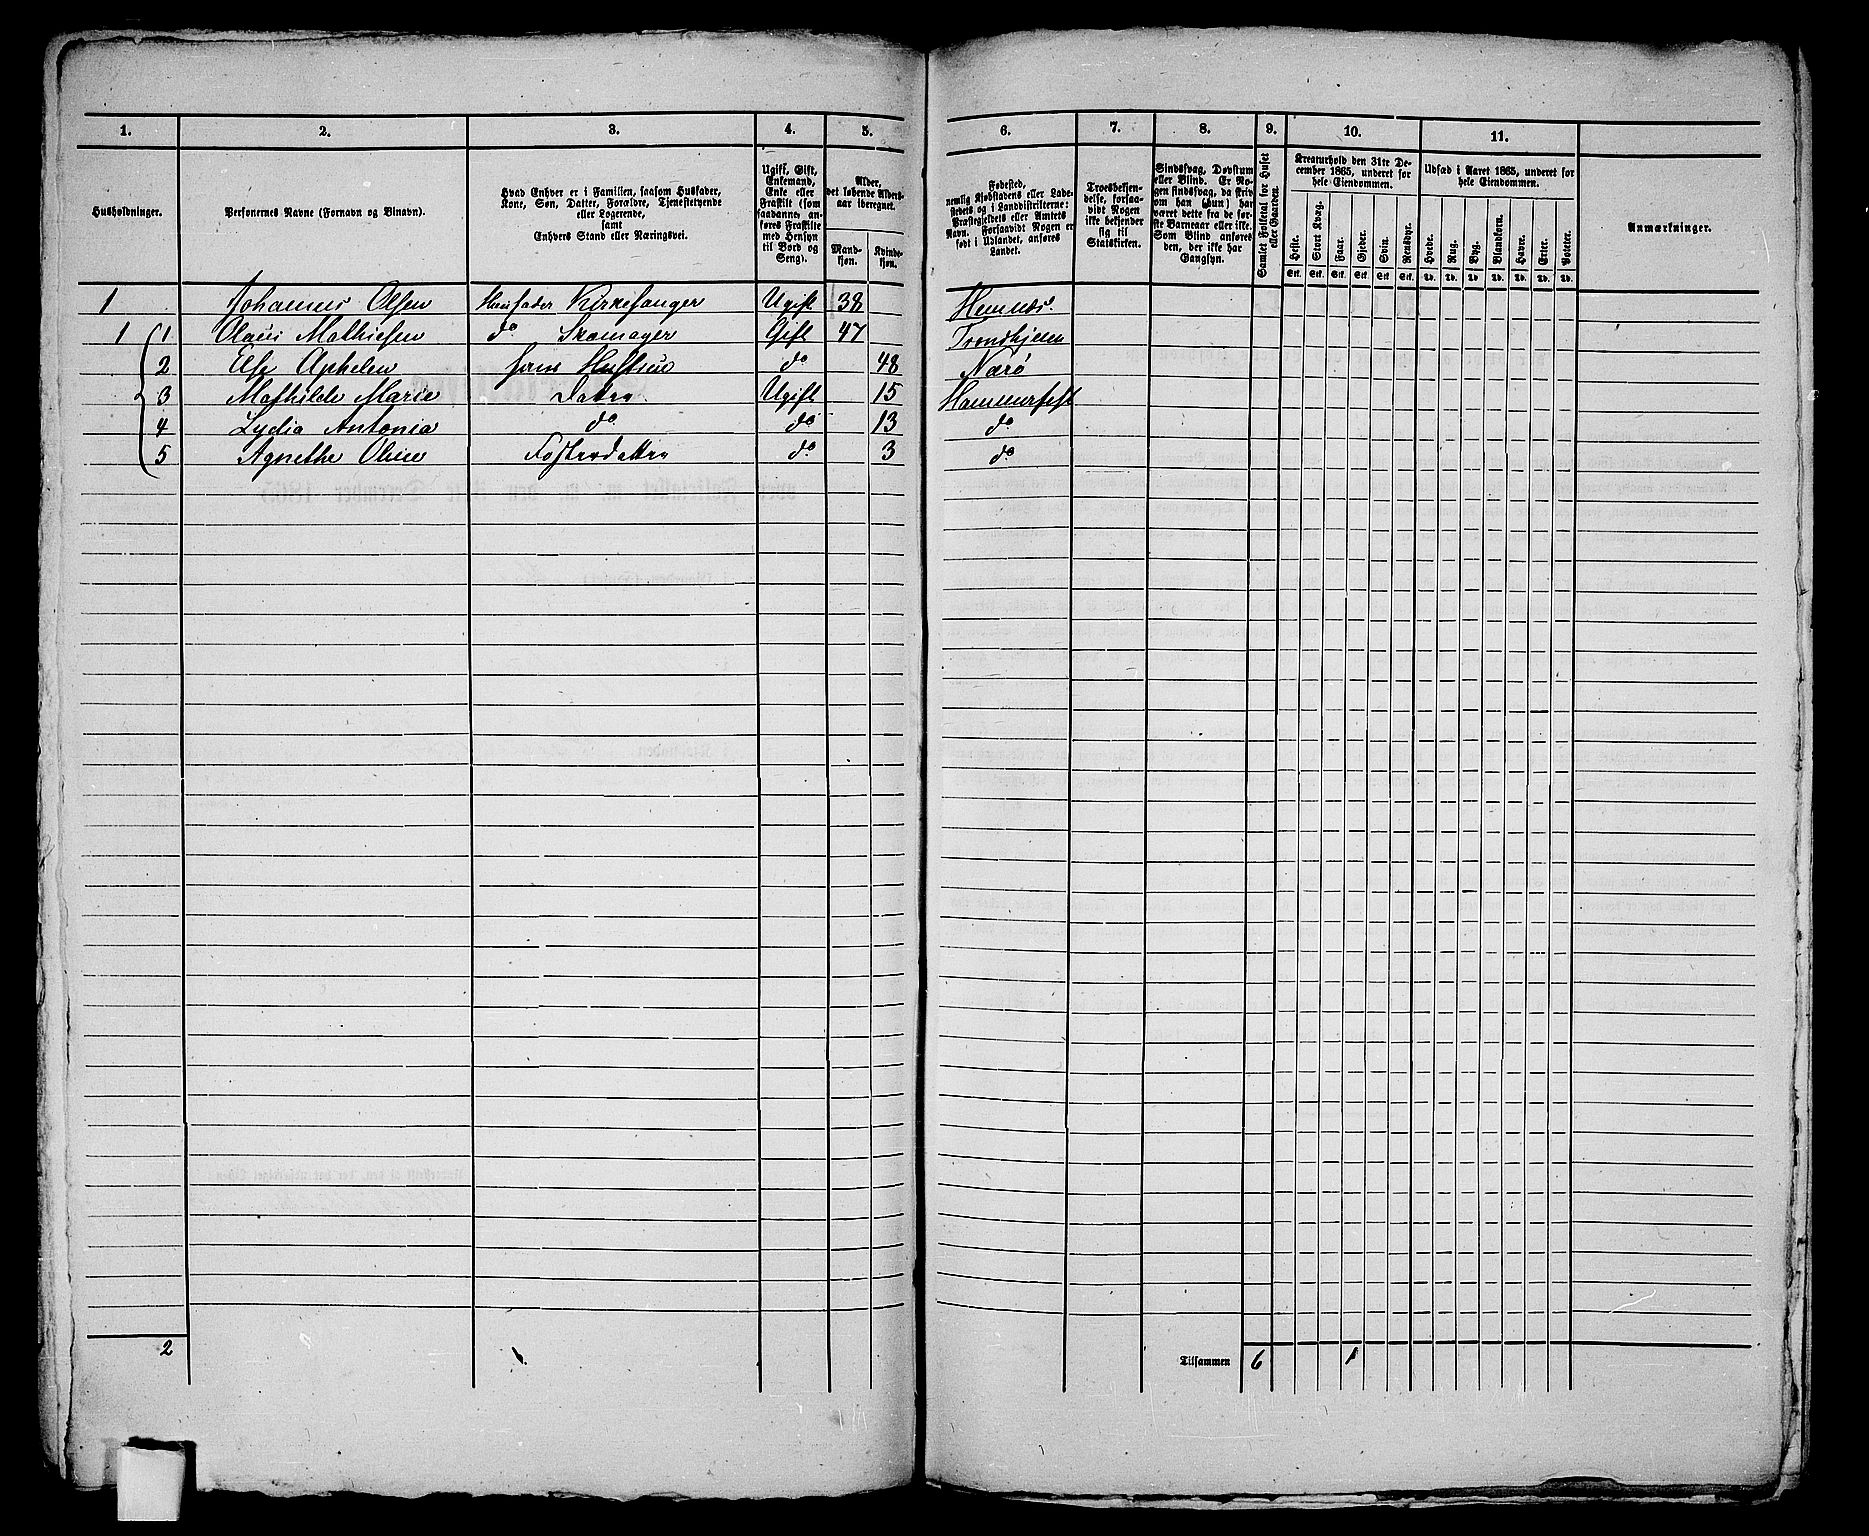 1. 2. 3. 4. 5. 6. 7. 8. 9. 10. 11.
Husholdninger.
Personernes Navne (Fornavn og Binavn).
Hvad Enhver er i Familien, saasom Husfader,
Kone, Søn, Datter, Forældre, Tjenestetyende
eller Logerende,
samt
Enhvers Stand eller Næringsvei.
Ugift, Gift,
Enkemand,
Enke eller
Fraskilt (som
saadanne anføres Fraskilte
med Hensyn
til Bord og
Seng).
Alder,
det løbende Aldersaar iberegnet.
Mandkjøn.
Kvindekjøn.
Fødested,
nemlig Kjøbstadens eller Ladestedets og i Landdistrikterne:
Præstegjeldets eller Amtets
Navn. Forsaavidt Nogen er
født i Udlandet, anføres
Landet.
Troesbekjendelse, forsaavidt Nogen
ikke bekjender
sig til
Statskirken.
Sindssvag, Døvstum
eller Blind. Er Nogen sindssvag, da skrives
om han (hun) har
været dette fra de første Barneaar eller ikke.
Som Blind anføres
den, der ikke har
Gangsyn.
Samlet Folketal for Huset
eller Gaarden.
Kreaturhold den 31te December 1865, underet for
hele Eiendommen.
Heste. Stort Kvæg. Faar. Gjeder. Svin. Rensdyr.
Stk. Stk. Stk. Stk. Stk. Stk.
Udsæd i Aaret 1865, underet for
hele Eiendommen.
Hvede. Rug. Byg. Blandkorn. Havre. Erter. Poteter.
Td. Td. Td. Td. Td. Td. Td.
Anmærkninger.
1 Johannes Olsen Husfader Kirkesanger Ugift 38 Hemnæs.
1 1 Olaus Mathiesen do Skomager Gift 47 Trondhjem
2 Else Aphelen hans Hustrue do 48 Nærø
3 Mathilde Marie Datter Ugift 15 Hammerfest
4 Lydia Antonia do do 13 do
5 Agnethe Oline Fosterdatter do 3 do
2 Tilsammen 6 1